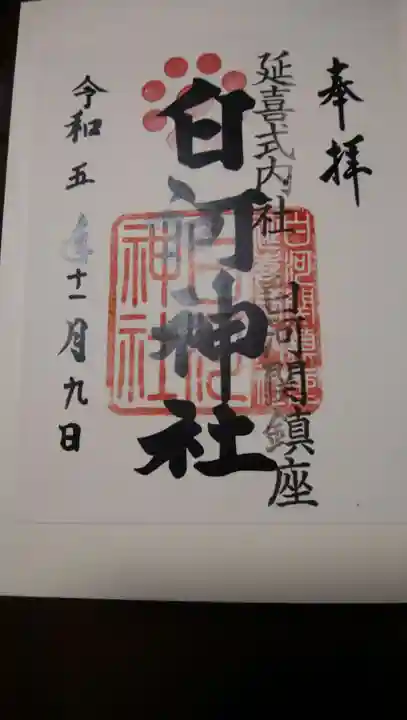 奉拝
延喜式内社
白河関鎮座
白河神社
令和五年十一月九日
白河神社